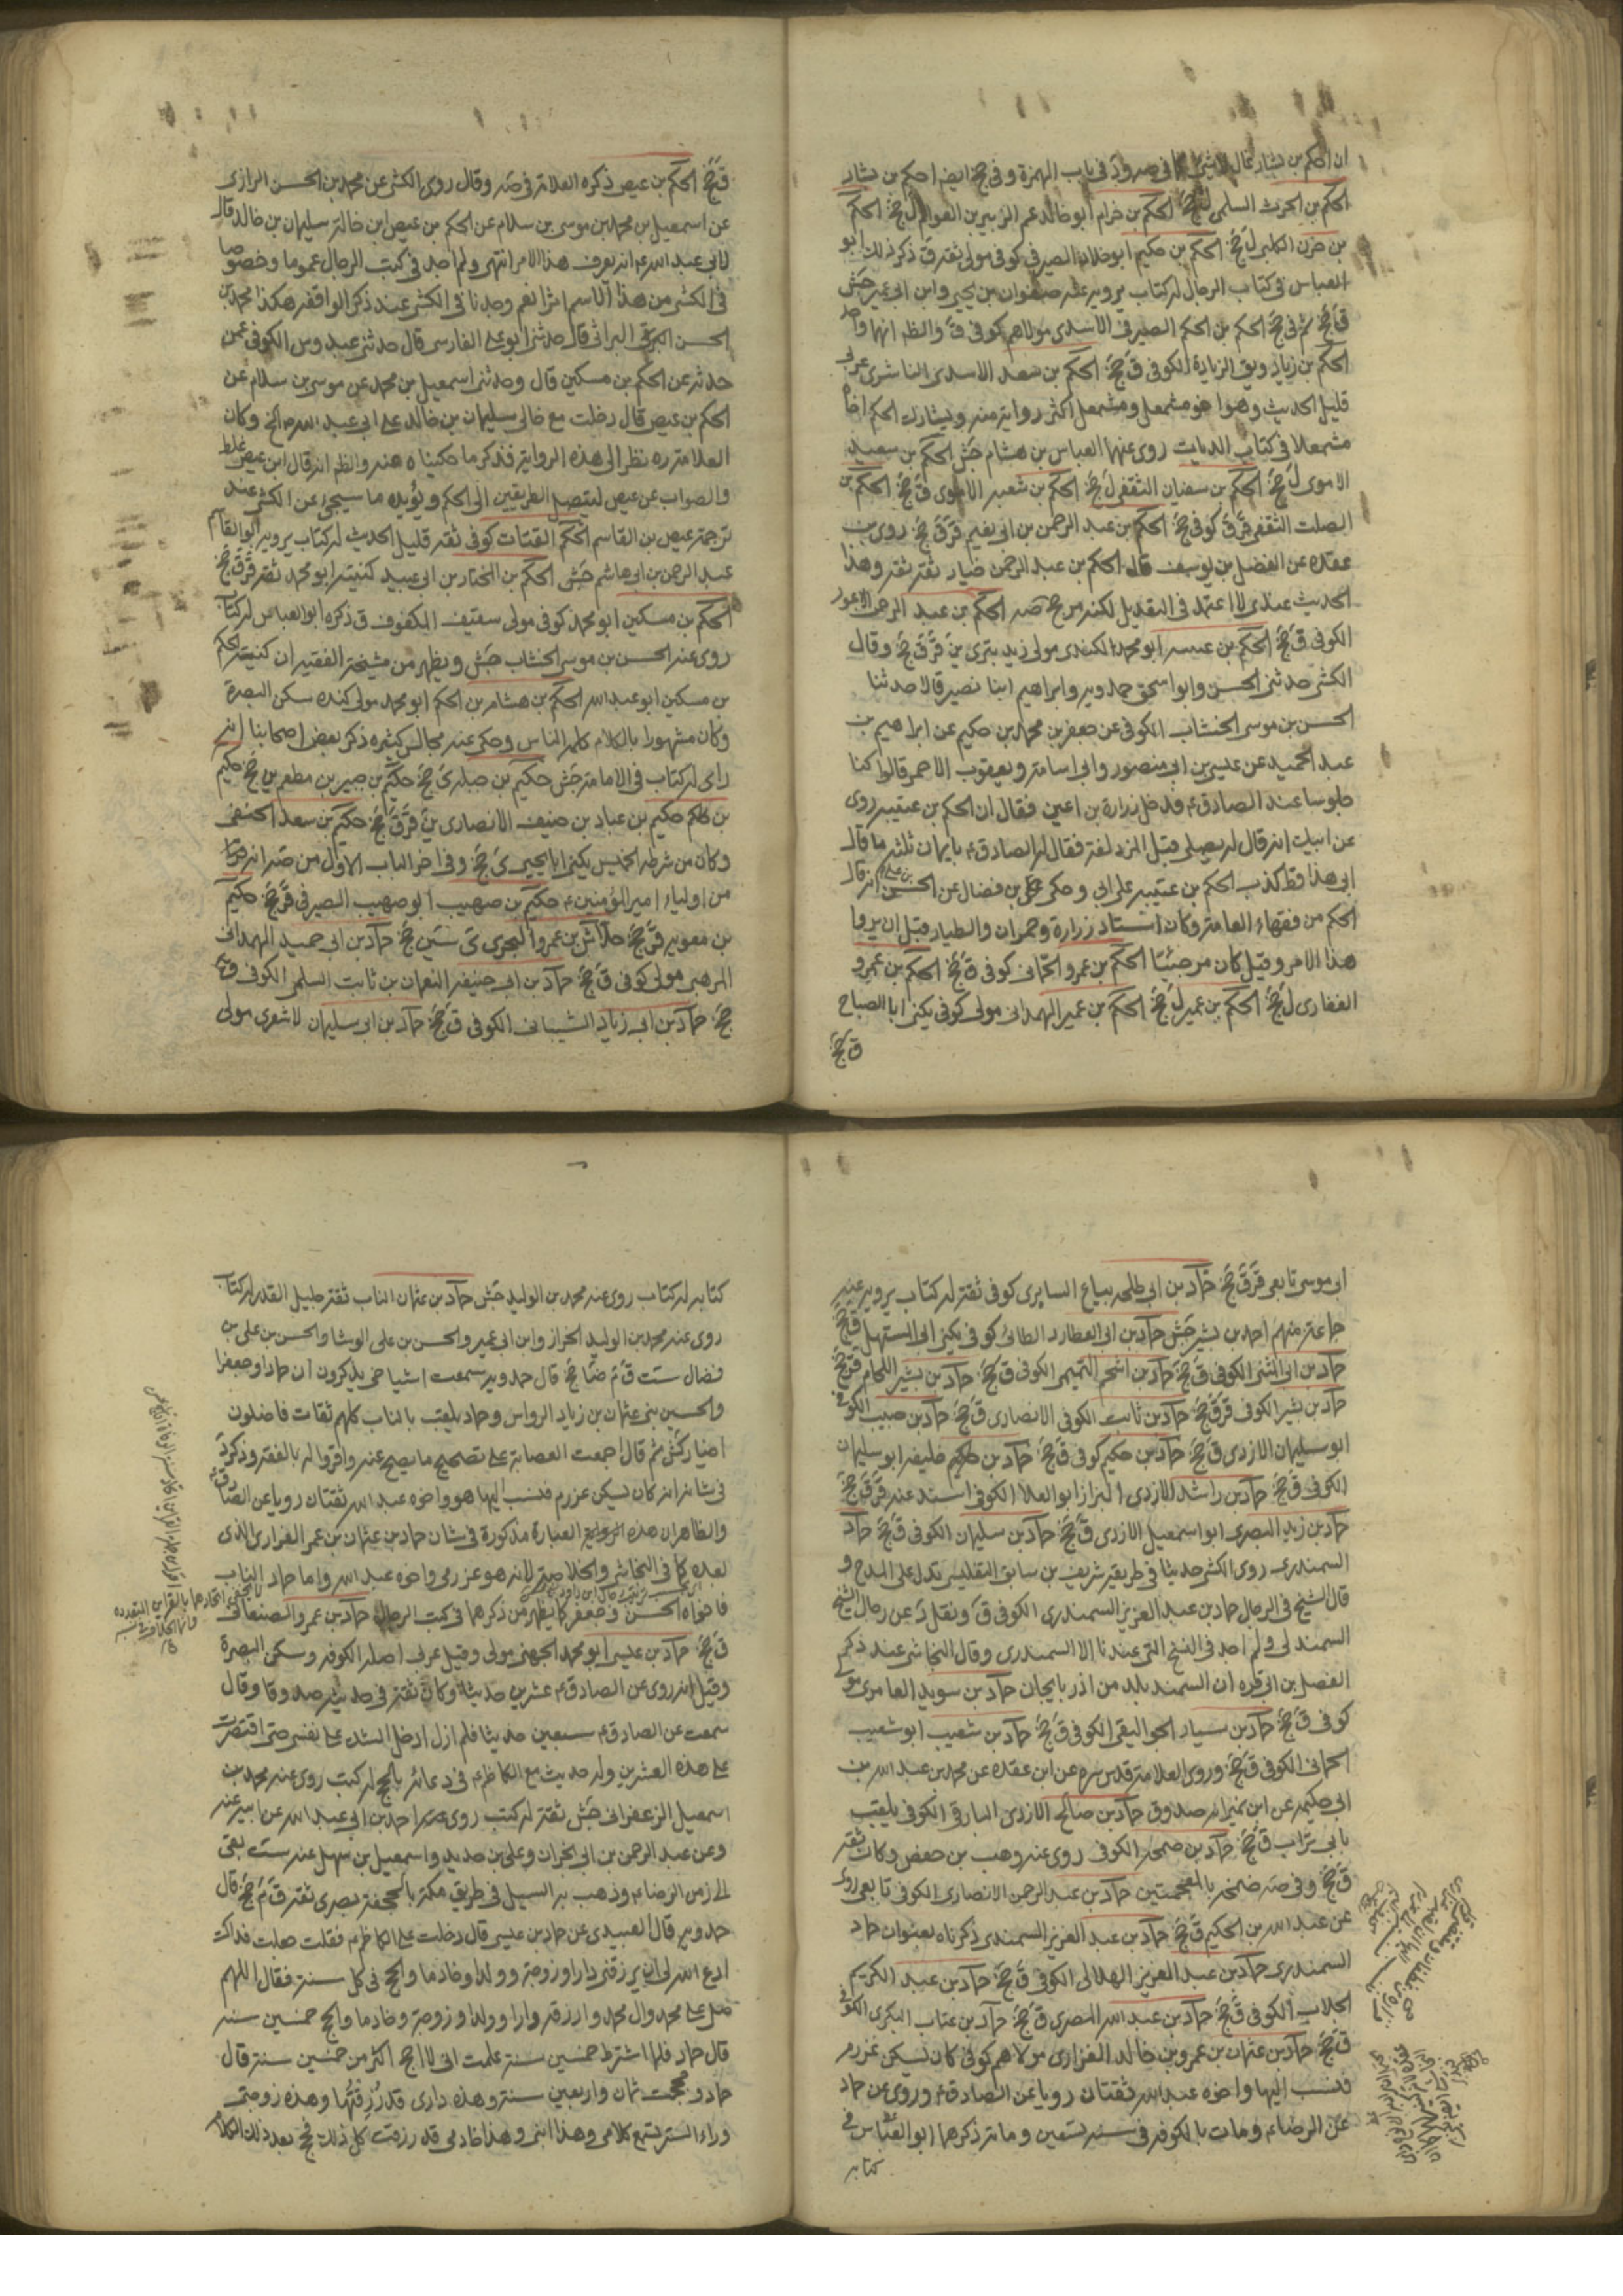 ان الحكم بن بشار في باب الهمزة وفي جخ ايضا حكم بن بشار
الحكم بن الحرث السلمي ل جخ الحكم بن حزام ابو خالد عم الزبير بن العوام ل جخ الحكم
بن حزن الكلبي ل جخ الحكم بن حكيم ابو خلاد الصيرفي كوفي مولى ثقة ق ذكر ذلك ابو
العباس في كتاب الرجال له كتاب يرويه عنه صفوان بن يحيى وابن ابي عمير جش
ق جخ ثم في جخ الحكم بن الحكم الصيرفي الاسدي مولاهم كوفي ق والظ انهما واحد
الحكم بن زياد ويق الزيادة الكوفي ق جخ الحكم بن سعد الاسدي الناشري عربي
قليل الحديث وهو اخو مشمعل ومشمعل اكثر رواية منه ويشارك الحكم اخاه
مشمعلا في كتاب الديات روى عنهما العباس بن هشام جش الحكم بن سعيد
الاموي ل جخ الحكم بن سفيان الثقفي ل جخ الحكم بن شعبة الاموي ق جخ الحكم بن
الصلت الثقفي قر ق كوفي جخ الحكم بن عبد الرحمن بن ابي نعيم قر ق جخ روى بن
عقدة عن الفضل بن يوسف قال الحكم بن عبد الرحمن خيار ثقة ثقة وهذا
الحديث عندي لا اعتمد في التعديل لكنه مرجح صه الحكم بن عبد الرحمن الاعور
الكوفي ق جخ الحكم بن عيينة ابو محمد الكندي مولى زيدي بتري ين قر ق جخ وقال
الكشي حدثني ابو الحسن وابو اسحق حمدويه وابراهيم ابنا نصير قالا حدثنا
الحسن بن موسى الخشاب الكوفي عن جعفر بن محمد بن حكيم عن ابراهيم بن
عبد الحميد عن عيسى بن ابي منصور وابي اسامة ويعقوب الاحمر قالوا كنا
جلوسا عند الصادق ع فدخل زرارة بن اعين فقال ان الحكم بن عتيبة روى
عن ابيك انه قال له يصلي قبل المزدلفة فقال له الصادق ع بايمان ثلثه ما قال
ابي هذا قط كذب الحكم بن عتيبة على ابي وحكى عن علي بن فضال عن الحسن بن علي انه قال
الحكم من فقهاء العامة وكان استاد زرارة وحمران والطيار قبل ان يروا
هذا الامر وقيل كان مرجئيا الحكم بن عمرو الحماني كوفي ق جخ الحكم بن عمرو
الغفاري ل جخ الحكم بن عمير ل جخ الحكم بن عمير الهمداني مولى كوفي يكنى ابا الصباح
ق جخ
ق جخ الحكم بن عيص ذكره العلامة في صه وقال روى الكشي عن محمد بن الحسن الرازي
عن اسمعيل بن محمد بن موسى بن سلام عن الحكم بن عيص ابن خالة سليمان بن خالد قال
لابي عبد الله ع انه يعرف هذا الامر انتهى ولم اجد في كتب الرجال عموما وخصوصا
في الكشي من هذا الاسم اثرا نعم وجدنا في الكشي عند ذكر الواقفة هكذا محمد بن
الحسن البراثي قال حدثني ابو علي الفارسي قال حدثني عبدوس الكوفي عمن
حدثه عن الحكم بن مسكين قال وحدثني اسمعيل بن محمد عن موسى بن سلام عن
الحكم بن عيص قال دخلت مع خالي سليمان بن خالد على ابي عبد الله ع الخ وكان
العلامة ره نظر الى هذه الرواية فذكر ما حكيناه عنه والظم انه قال ابن عيص غلط
والصواب عن عيص ليتصل الطريقين الى الحكم ويؤيده ما سيجئ عن الكشي عند
ترجمة عيص بن القاسم الحكم القتات كوفي ثقة قليل الحديث له كتاب يرويه ابو القاسم
عبد الرحمن بن ابي هاشم جش الحكم بن المختار بن ابي عبيد كنيته ابو محمد ثقة قر ق جخ
الحكم بن مسكين ابو محمد كوفي مولى سقيف المكفوف ق ذكره ابو العباس له كتاب
روى عنه الحسن بن موسى الخشاب جش ويظهر من مشيخة الفقيه ان كنيته الحكم
بن مسكين ابو عبد الله الحكم بن هشام بن الحكم ابو محمد مولى كندة سكن البصرة
وكان مشهورا بالكلام كلم الناس وحكى عنه مجالس كثيرة ذكر بعض اصحابنا انه
راى له كتاب في الامامة جش حكيم بن جبلة ي جخ حكيم بن جبير بن مطعم ين جخ حكيم
بن حكم حكيم بن عباد بن حنيف الانصاري ين قر ق جخ حكيم بن سعد الحنفي
وكان من شرطة الخميس يكنى ابا يحيى ي جخ وفي اخر الباب الاول من صه
من اولياء امير المؤمنين ع حكيم بن صهيب ابو صهيب الصيرفي قر جخ حكيم
بن معوية قر جخ حلاش بن عمرو الهجري ي سين جخ حماد بن ابي حميد الهمداني
المرهبي مولى كوفي ق جخ حماد بن ابي حنيفة النعمان بن ثابت السلمي الكوفي ق
جخ حماد بن ابي زياد الشيباني الكوفي ق جخ حماد بن ابي سليمان لاشعري مولى
ابي موسى تابعي قر ق جخ حماد بن ابي طلحة بياع السابري كوفي ثقة له كتاب يرويه عنه
جماعة منهم احمد بن بشير جش حماد بن ابي العطارد الطائي كوفي يكنى ابي المستهل ق جخ
حماد بن ابي المثنى الكوفي ق جخ حماد بن اشحم التميمي الكوفي ق جخ حماد بن بشير اللحام قر جخ
حماد بن بشير الكوفي قر ق جخ حماد بن ثابت الكوفي الانصاري ق جخ حماد بن حبيب الكوفي
ابو سليمان الازدي ق جخ حماد بن حكيم كوفي ق جخ حماد بن خليفة ابو سليمان
الكوفي ق جخ حماد بن راشد الازدي البزاز ابو العلا الكوفي اسند عنه قر ق جخ
حماد بن زيد البصري ابو اسمعيل الازدي ق جخ حماد بن سليمان الكوفي ق جخ حماد
السمندري روى الكشي حديثا في طريقه شريف بن سابق التفليسي تدل على المدح و
قال الشيخ في الرجال حماد بن عبد العزيز السمندري الكوفي ق ونقل د عن رجال الشيخ
السمندلي ولم اجد في النسخ التي عندنا الا السمندري وقال النجاشي عند ذكر
الفضل بن ابي قرة ان السمند بلد من اذربايجان حماد بن سويد العامري مولى
كوفي ق جخ حماد بن سيار الجواليقي الكوفي ق جخ حماد بن شعيب ابو شعيب
الحماني الكوفي ق جخ وروى العلامة قدس سره عن ابن عقدة عن محمد بن عبد الله بن
ابي حكيمة عن ابن نمير انه صدوق حماد بن صالح الازدي البارقي الكوفي يلقب
بابي تراب ق جخ حماد بن ضمخة الكوفي روى عنه وهب بن حفص وكان ثقة
ق جخ وفي صه ضمخة بالمعجمتين حماد بن عبد الرحمن الانصاري الكوفي تابعي روى
عن عبد الله بن الحكيم ق جخ حماد بن عبد العزيز السمندري ذكرناه بعنوان حماد
السمندري حماد بن عبد العزيز الهلالي الكوفي ق جخ حماد بن عبد الكريم
الجلاب الكوفي ق جخ حماد بن عبد الله البصري ق جخ حماد بن عتاب البكري الكوفي
ق جخ حماد بن عثمان بن عمرو بن خالد الفزاري مولاهم كوفي كان يسكن عزرم
فنسب اليها واخوه عبد الله ثقتان رويا عن الصادق ع وروى عن حماد
عن الرضا ع ومات بالكوفة في سنة تسعين ومائة ذكرهما ابو العباس في
كتابه
كتابه له كتاب روى عنه محمد بن الوليد جش حماد بن عثمان الناب ثقة جليل القدر له كتاب
روى عنه محمد بن الوليد الخزاز وابن ابي عمير والحسن بن علي الوشا والحسن بن علي بن
فضال ست ق م ضا جخ قال حمدويه سمعت اشياخي يذكرون ان حمادا وجعفرا
والحسين بني عثمان بن زياد الرواس وحماد يلقب بالناب كلهم ثقات فاضلون
اخيار كش ثم قال اجمعت العصابة على تصحيح ما يصح عنه واقروا له بالفقه وذكر د
في شانه انه كان يسكن عزرم فنسب اليها هو واخوه عبد الله ثقتان رويا عن الصادق
والظاهر ان هذه العبارة مذكورة في شان حماد بن عثمان بن عمر الفزاري الذي
بعده كما في النجاشي والخلاصة لانه هو عزرمي واخوه عبد الله واما حماد الناب
فاخواه الحسن وجعفر كما يظهر من ذكرهما في كتب الرجال حماد بن عمرو الصنعاني
ق جخ حماد بن عيسى ابو محمد الجهني مولى وقيل عربي اصله الكوفة وسكن البصرة
وقيل انه روى عن الصادق ع عشرين حديثا وكان ثقة في حديثه صدوقا وقال
سمعت عن الصادق ع سبعين حديثا فلم ازل ادخل الشك على نفسي حتى اقتصرت
على هذه العشرين وله حديث مع الكاظم ع في دعائه بالحج له كتب روى عنه محمد بن
اسمعيل الزعفراني جش ثقة له كتب روى عنه احمد بن ابي عبد الله عن ابيه عنه
وعن عبد الرحمن بن ابي نجران وعلي بن حديد واسمعيل بن سهل عنه ست بقي
الى زمن الرضا ع وذهب به السيل في طريق مكة بالجحفة بصري ثقة ق م جخ قال
حدويه قال العبيدي عن حماد بن عيسى قال دخلت على الكاظم ع فقلت جعلت فداك
ادع الله لي ان يرزقني دارا وزوجة وولدا وخادما والحج في كل سنة فقال اللهم
صل على محمد وال محمد وارزقه دارا وولدا وزوجة وخادما والحج خمسين سنة
قال حماد فلما اشترط خمسين سنة علمت اني لا احج اكثر من خمسين سنة قال
حماد وحججت ثمان واربعين سنة وهذه داري قد رزقتها وهذه زوجتي
وراء الستر تسمع كلامي وهذا ابني وهذا خادمي قد رزقت كل ذلك فحج بعد ذلك الكلام